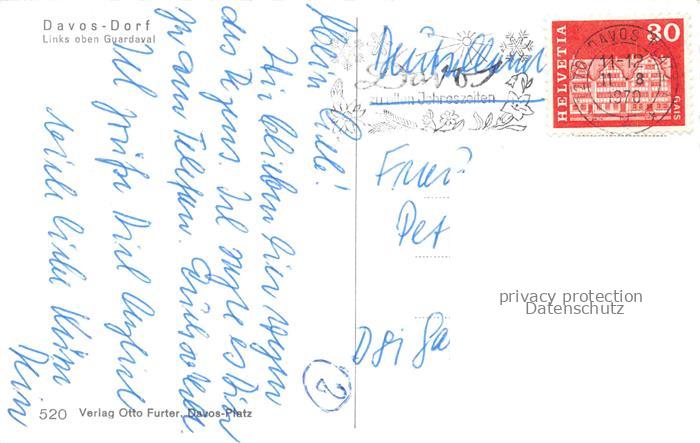 Davos-Dorf
Links oben Guardaval
Mein
Wir bleiben hier wegen
des Regens. Ich sagte es Dir
ja am Telefon.
Ich grüße Dich
viele liebe Küsse
Dein
2
520 Verlag Otto Furter, Davos-Platz
Deutschland
Davos
Jahreszeiten
HELVETIA
30
GAIS
DAVOS
11-12
11. 8.
1970
Frau
Pet
privacy protection
Datenschutz